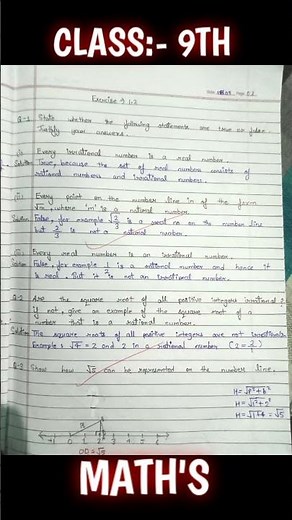 CLASS:- 9TH
Exercise 1.2
Q-1 State whether the following statements are true or false.
Justify your answers.
(i) Every irrational number is a real number.
Solution True, because the set of real numbers consists of
rational numbers and irrational numbers.
(ii) Every point on the number line is of the form
√m, where 'm' is a natural number.
Solution False, for example
is a real no on the number line
but
is not a natural number.
(iii) Every real number is an irrational number.
Solution False, for example
is a rational number and hence it
is real. But it is not an irrational number.
Q-2 Are the square root of all positive integers irrational?
if not, give an example of the square root of a
number that is a rational number.
Solution The square roots of all positive integers are not irrational.
Example: √4 = 2 and 2 is a rational number
Q-3 Show how √5 can be represented on the number line.
H=
H=
H=√1+4 = √5
-1 0 1 2 3
OD = √5
MATH'S